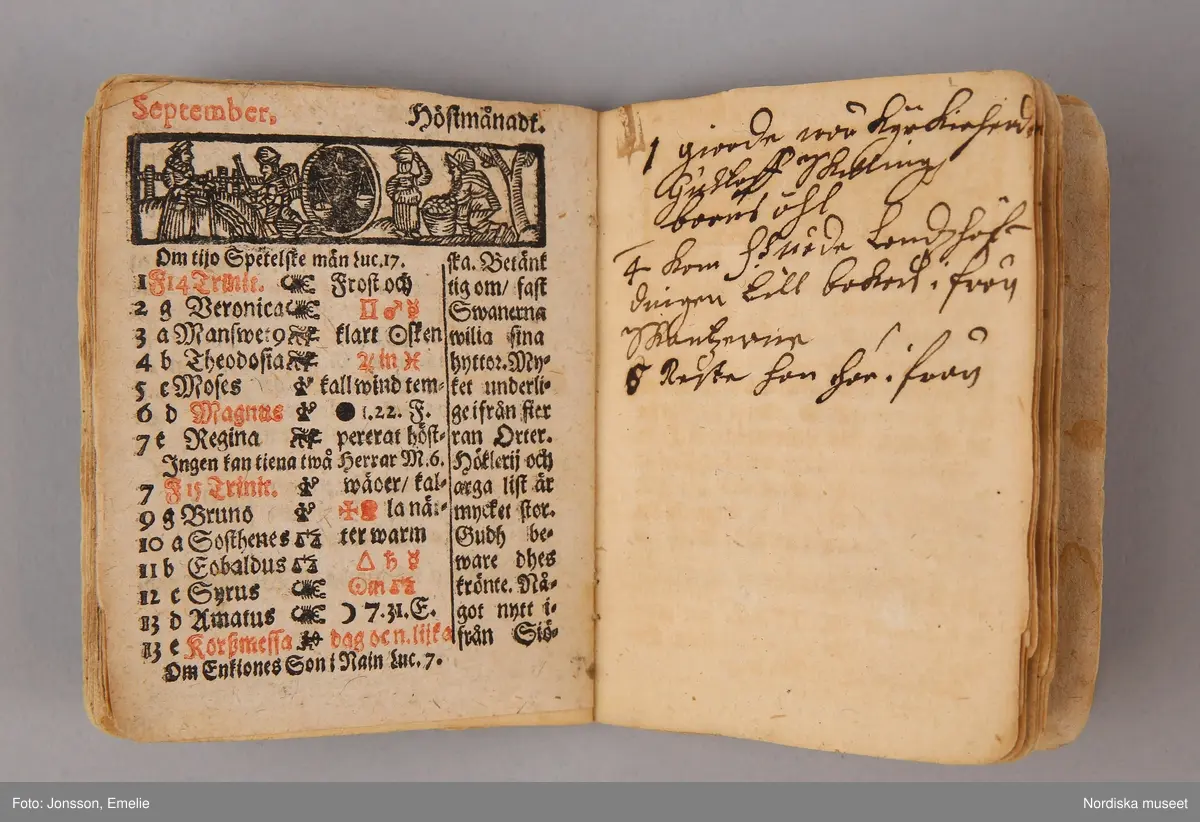 September,
Höstmånadt.
Om tijo Spetelske män Luc. 17.
1 F 14 Trinit. Frost och
2 g Veronica ♊ ♂ ☿
3 a Manswet 9 klart ☉sken
4 b Theodosia ♃ in ♓
5 c Moses kall wind tem-
6 d Magnus ● 1. 22. F.
7 e Regina pererat höst-
Ingen kan tiena twå Herrar M. 6.
7 F 15 Trinit. wäder/ kal-
9 g Bruno la nät-
10 a Sosthenes ter warm
11 b Eobaldus △ ♄ ☿
12 c Syrus ☉ in ♎
13 d Amatus ☽ 7. 31. E.
13 e Korßmessa dag oc n. lijka
Om Enkiones Son i Nain Luc. 7.
ska. Betänk
tig om/ fast
Swanerna
wilia sina
hyttor. My-
ket underli-
ge ifrån fier
ran Orter.
Höklerij och
arga list är
mycket stor.
Gudh be-
ware dhes
krönte. Nå-
got nytt i-
från Siö-
1 giorde wår Kyrkioherde
barns öhl
4 kom Landzhöf-
dingen till i från
8 Reste han här i från
Foto: Jonsson, Emelie
Nordiska museet